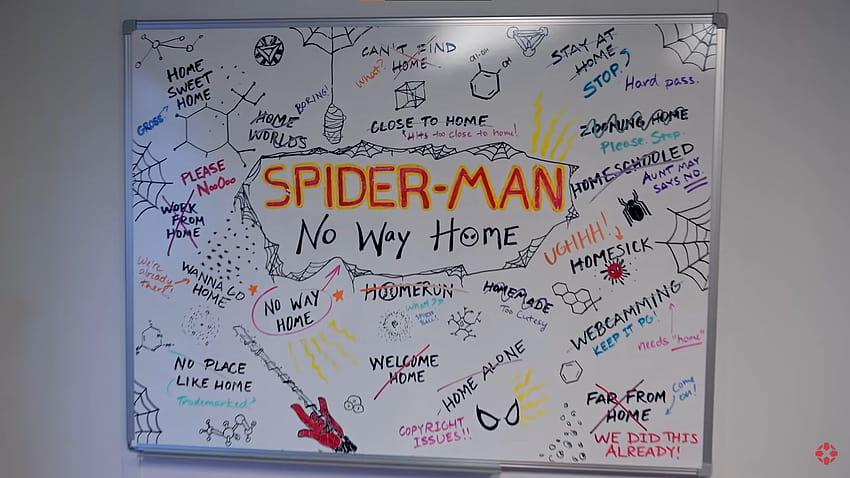 CAN'T FIND
HOME
What?
STAY AT
HOME
STOP!
Hard pass.
HOME
SWEET
HOME
GROSS
HOME
WORLDS
BORING!
CH-OH
OH
CLOSE TO HOME
*Hits too close to home!
ZOOMING HOME
Please. Stop.
HOMESCHOOLED
AUNT MAY
SAYS NO.
PLEASE
NoOOoo
WORK
FROM
HOME
SPIDER-MAN
No Way Home
UGHHH!
HOMESICK
We're
already
there!!
WANNA GO
HOME
NO WAY
HOME
HOOMERUN
What??
SPIDER
BALL?
HOMEMADE
Too Cutesy
WEBCAMMING
KEEP IT PG!
needs "home"
NO PLACE
LIKE HOME
Trademarked?
WELCOME
HOME
HOME ALONE
COPYRIGHT
ISSUES!!
FAR FROM
HOME
COME
ON!
WE DID THIS
ALREADY!